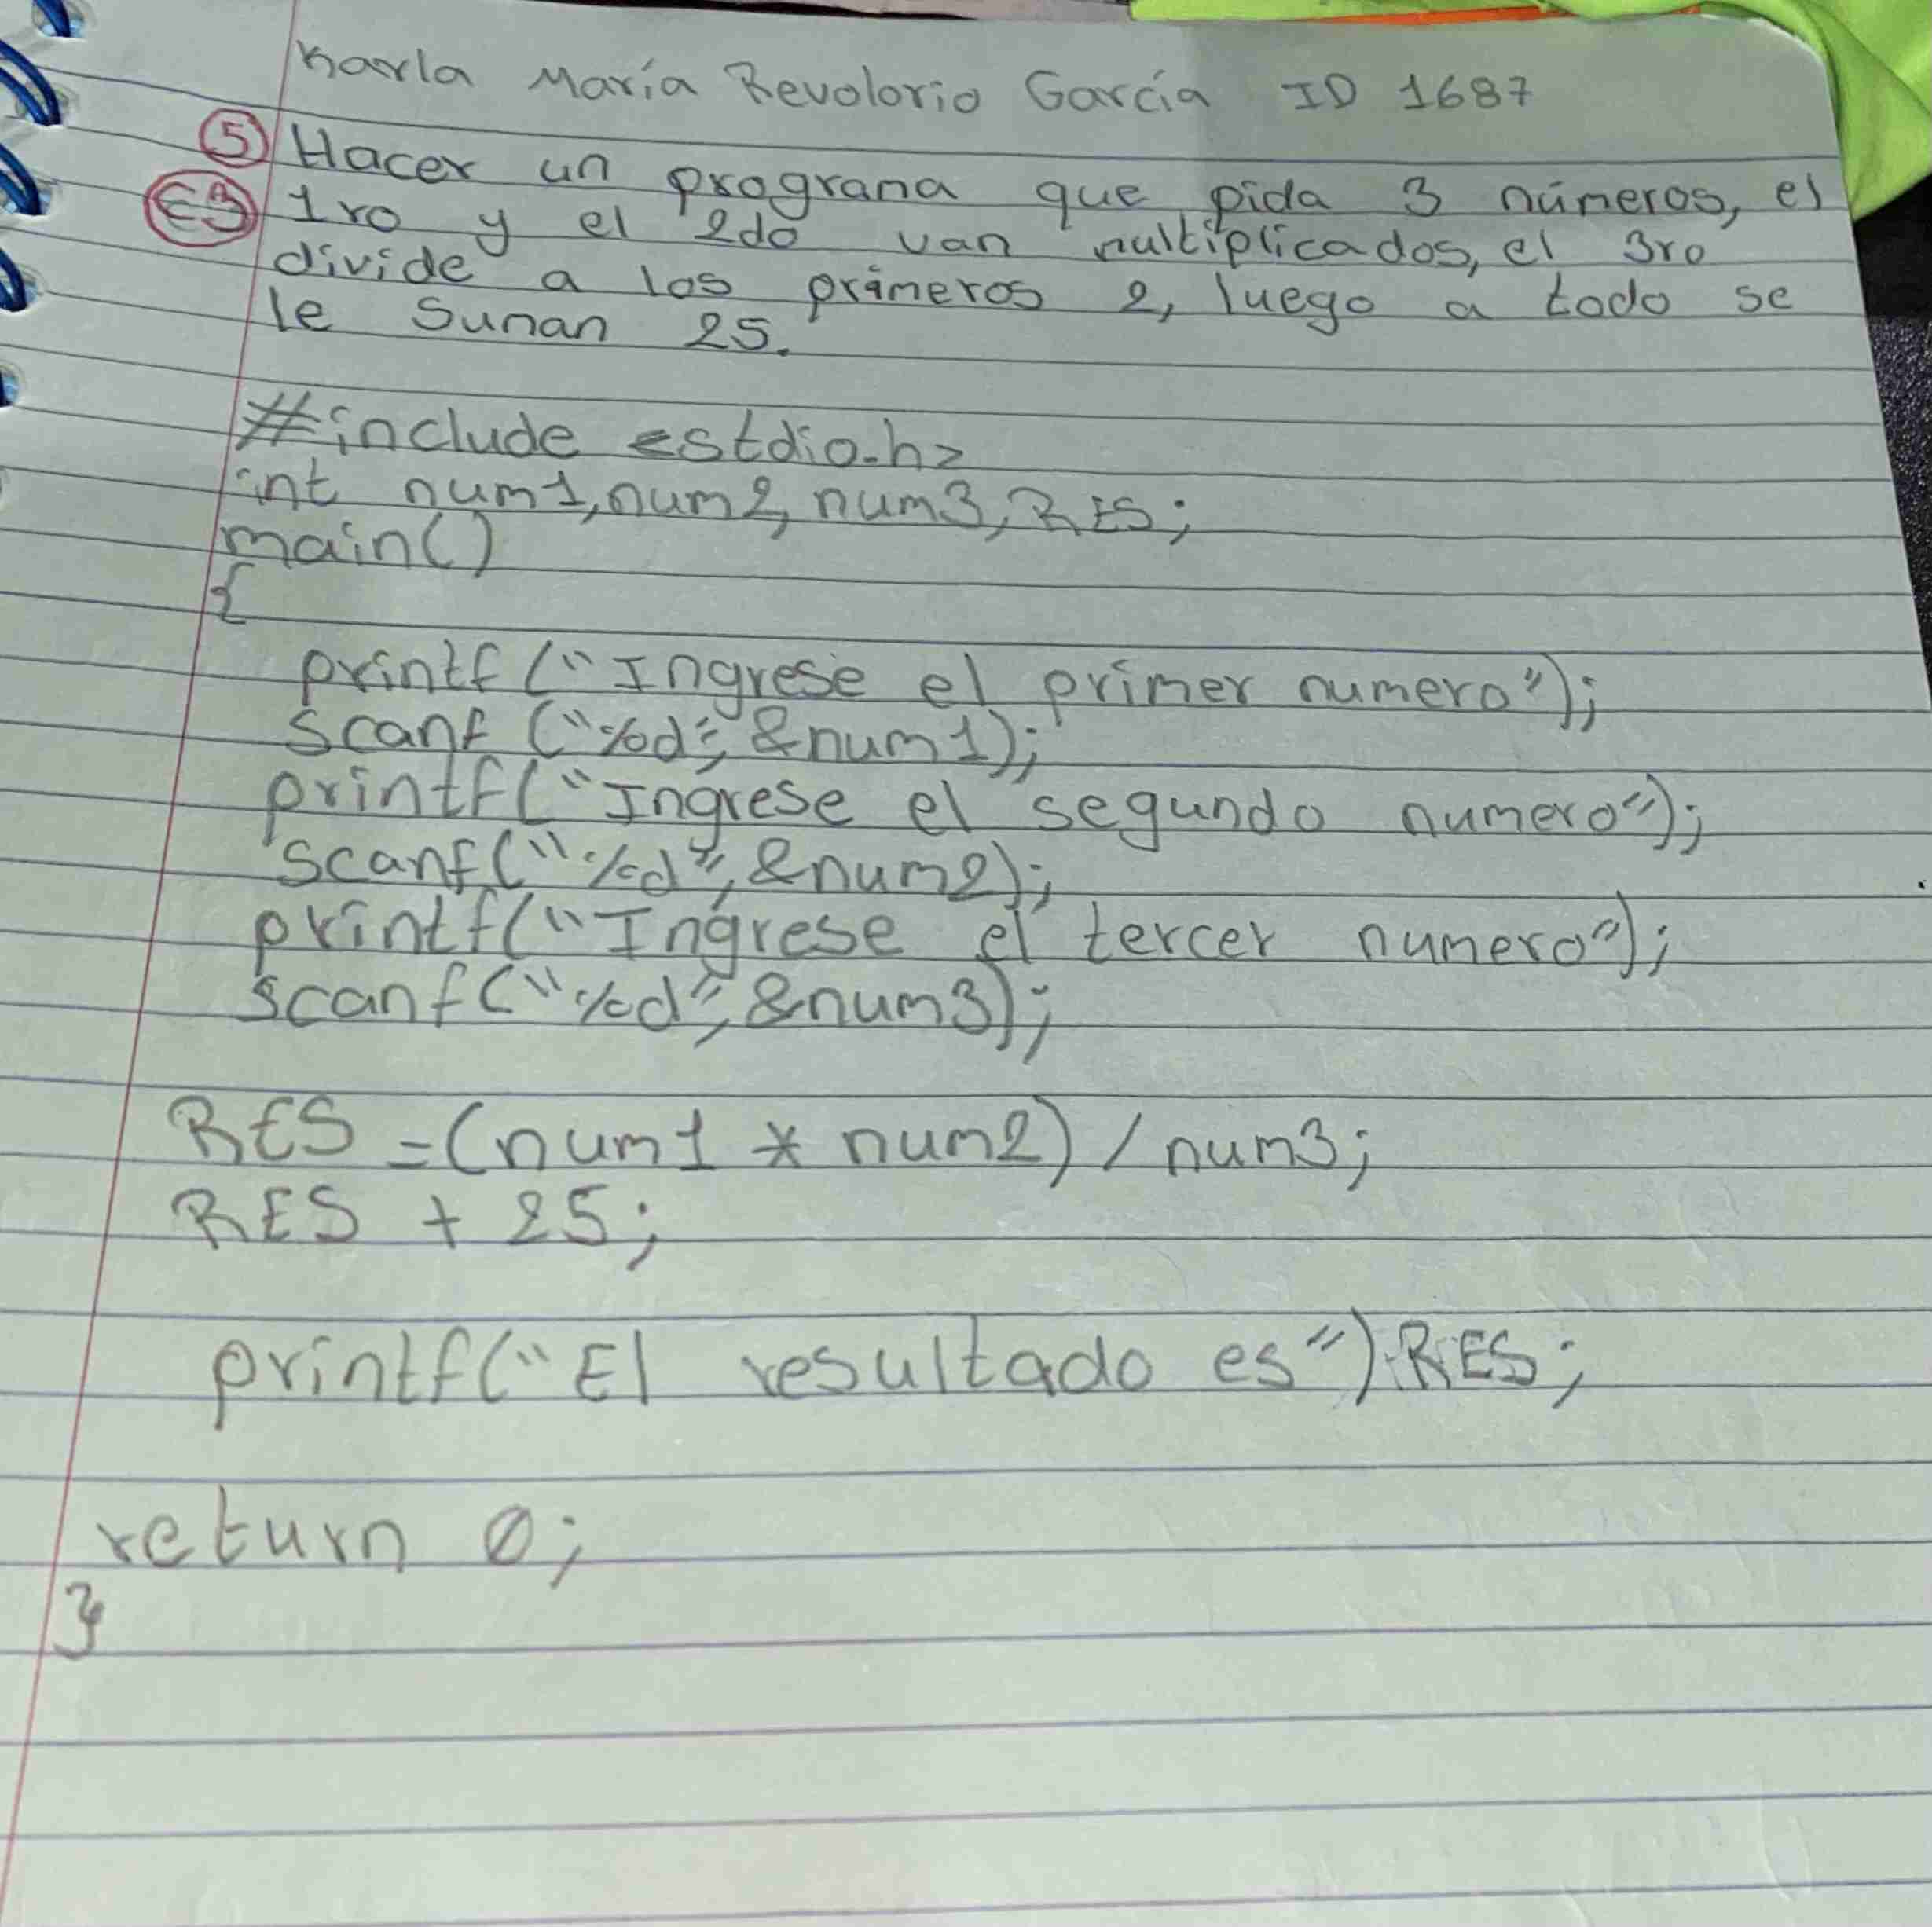 Karla María Revolorio García ID 1687
5 Hacer un prograna que pida 3 números, el
E3 1ro y el 2do van nultiplicados, el 3ro
divide a los primeros 2, luego a todo se
le sunan 25.
#include <stdio.h>
int num1, num2, num3, RES;
main()
{
printf ("Ingrese el primer numero");
scanf ("%d", &num1);
printf("Ingrese el segundo numero");
scanf("%d", &num2);
printf("Ingrese el tercer numero");
scanf("%d", &num3);
RES = (num1 * num2) / num3;
RES + 25;
printf("El resultado es") RES;
return 0;
}